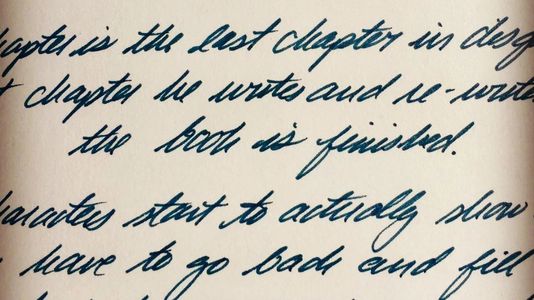 hapter is the last chapter in disgu
t chapter he writes and re-write
the book is finished.
haracters start to actually show
have to go back and fill